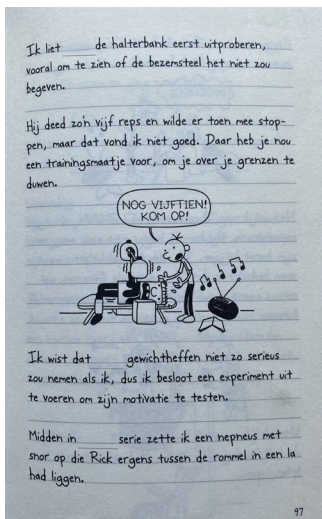 Ik liet de halterbank eerst uitproberen,
vooral om te zien of de bezemsteel het niet zou
begeven.
Hij deed zo'n vijf reps en wilde er toen mee stop-
pen, maar dat vond ik niet goed. Daar heb je nou
een trainingsmaatje voor, om je over je grenzen te
duwen.
NOG VIJFTIEN!
KOM OP!
Ik wist dat gewichtheffen niet zo serieus
zou nemen als ik, dus ik besloot een experiment uit
te voeren om zijn motivatie te testen.
Midden in serie zette ik een nepneus met
snor op die Rick ergens tussen de rommel in een la
had liggen.
97